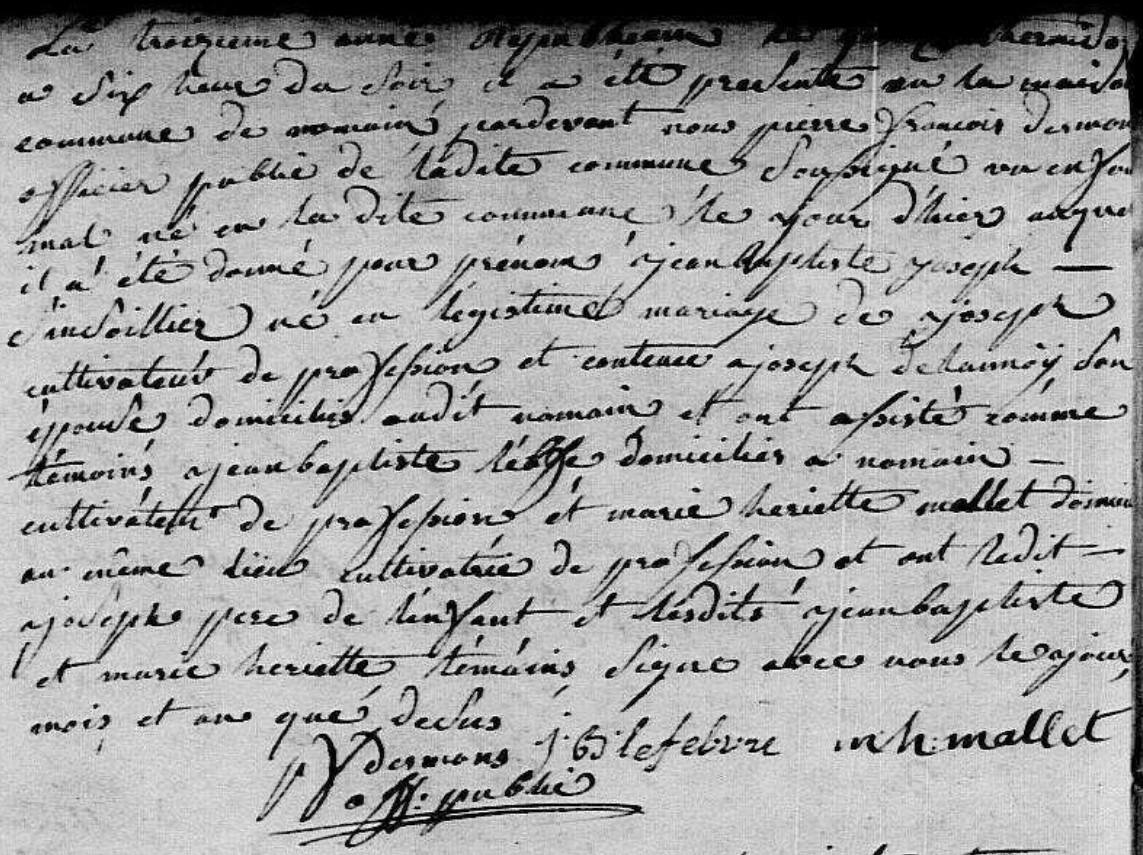 La troizieme anné Republicain le
a six heur du soir il a été presenté en la maison
commune de nomain pardevant nous pierre francois dermon
officier public de ladite commune soussigné un enfan
mal né en la dite commune le jour d'hier auque
il a été donné pour prénom jean baptiste joseph —
né en légistime mariage de joseph
cultivateur de profession et joseph delannoÿ son
épouse domiciliés audit nomain et ont assisté comme
témoins jean baptiste domicilier a nomain —
cultivateur de profession et marie heriette mallet domici
au même lieu cultivatrie de profession et ont ledit —
joseph pere de l'enfant et lesdits jean baptiste
et marie heriette témoins signe avec nous le jour,
mois et an que desus
pf dermons j·b·lefebvre m h mallet
off. public